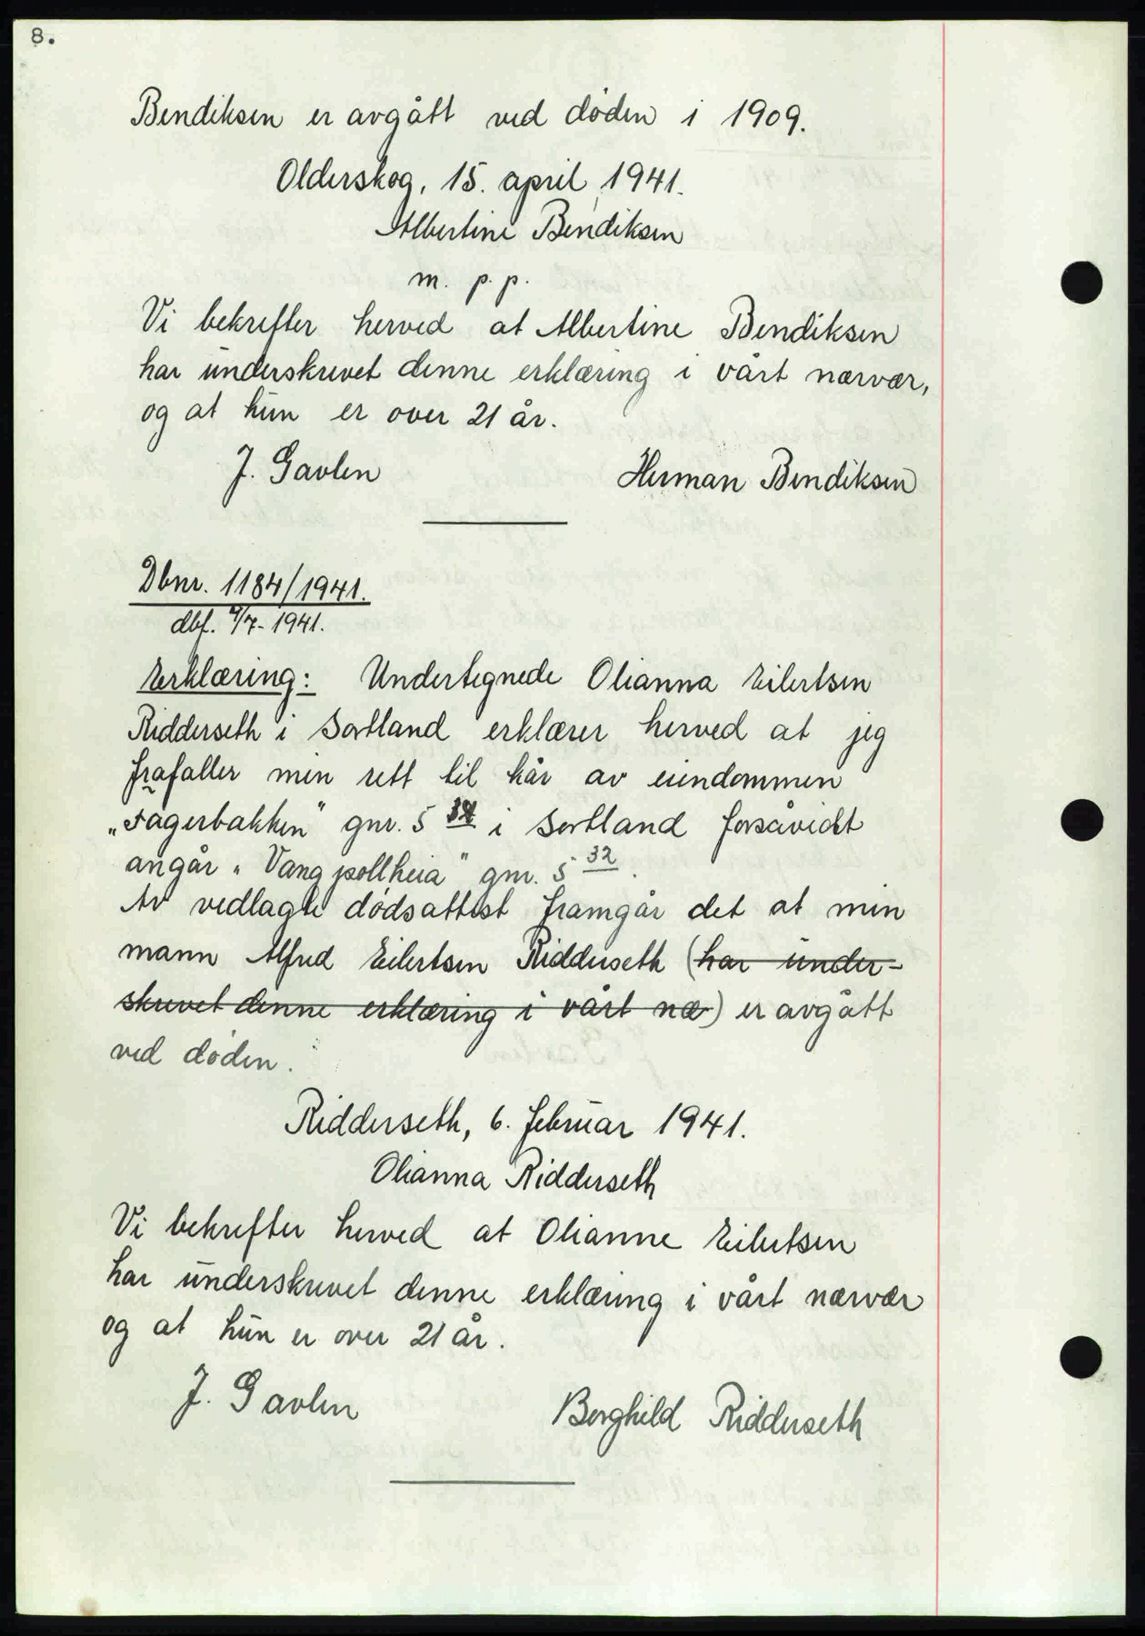 8.
Bendiksen er avgått ved døden i 1909.
Olderskog, 15. april 1941.
Albertine Bendiksen
m. p. p.
Vi bekrefter herved at Albertine Bendiksen
har underskrevet denne erklæring i vårt nærvær,
og at hun er over 21 år.
J. Gavlen Herman Bendiksen
Dbnr. 1184/1941.
dbf. 4/7-1941.
Erklæring: Undertegnede Olianna Eilertsen
Ridderseth i Sortland erklærer herved at jeg
frafaller min rett til kår av eiendommen
„Fagerbakken" gnr. 5 i Sortland forsåvidt
angår „Vangpollheia" gnr. 5 32.
Av vedlagte dødsattest framgår det at min
mann Alfred Eilertsen Ridderseth (har under-
skrevet denne erklæring i vårt næ) er avgått
ved døden.
Ridderseth, 6. februar 1941.
Olianna Ridderseth
Vi bekrefter herved at Olianne Eilertsen
har underskrevet denne erklæring i vårt nærvær
og at hun er over 21 år.
J. Gavlen Borghild Ridderseth